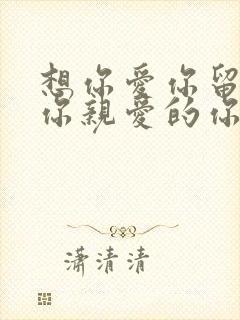 想你愛你留
你親愛的你
潇清清